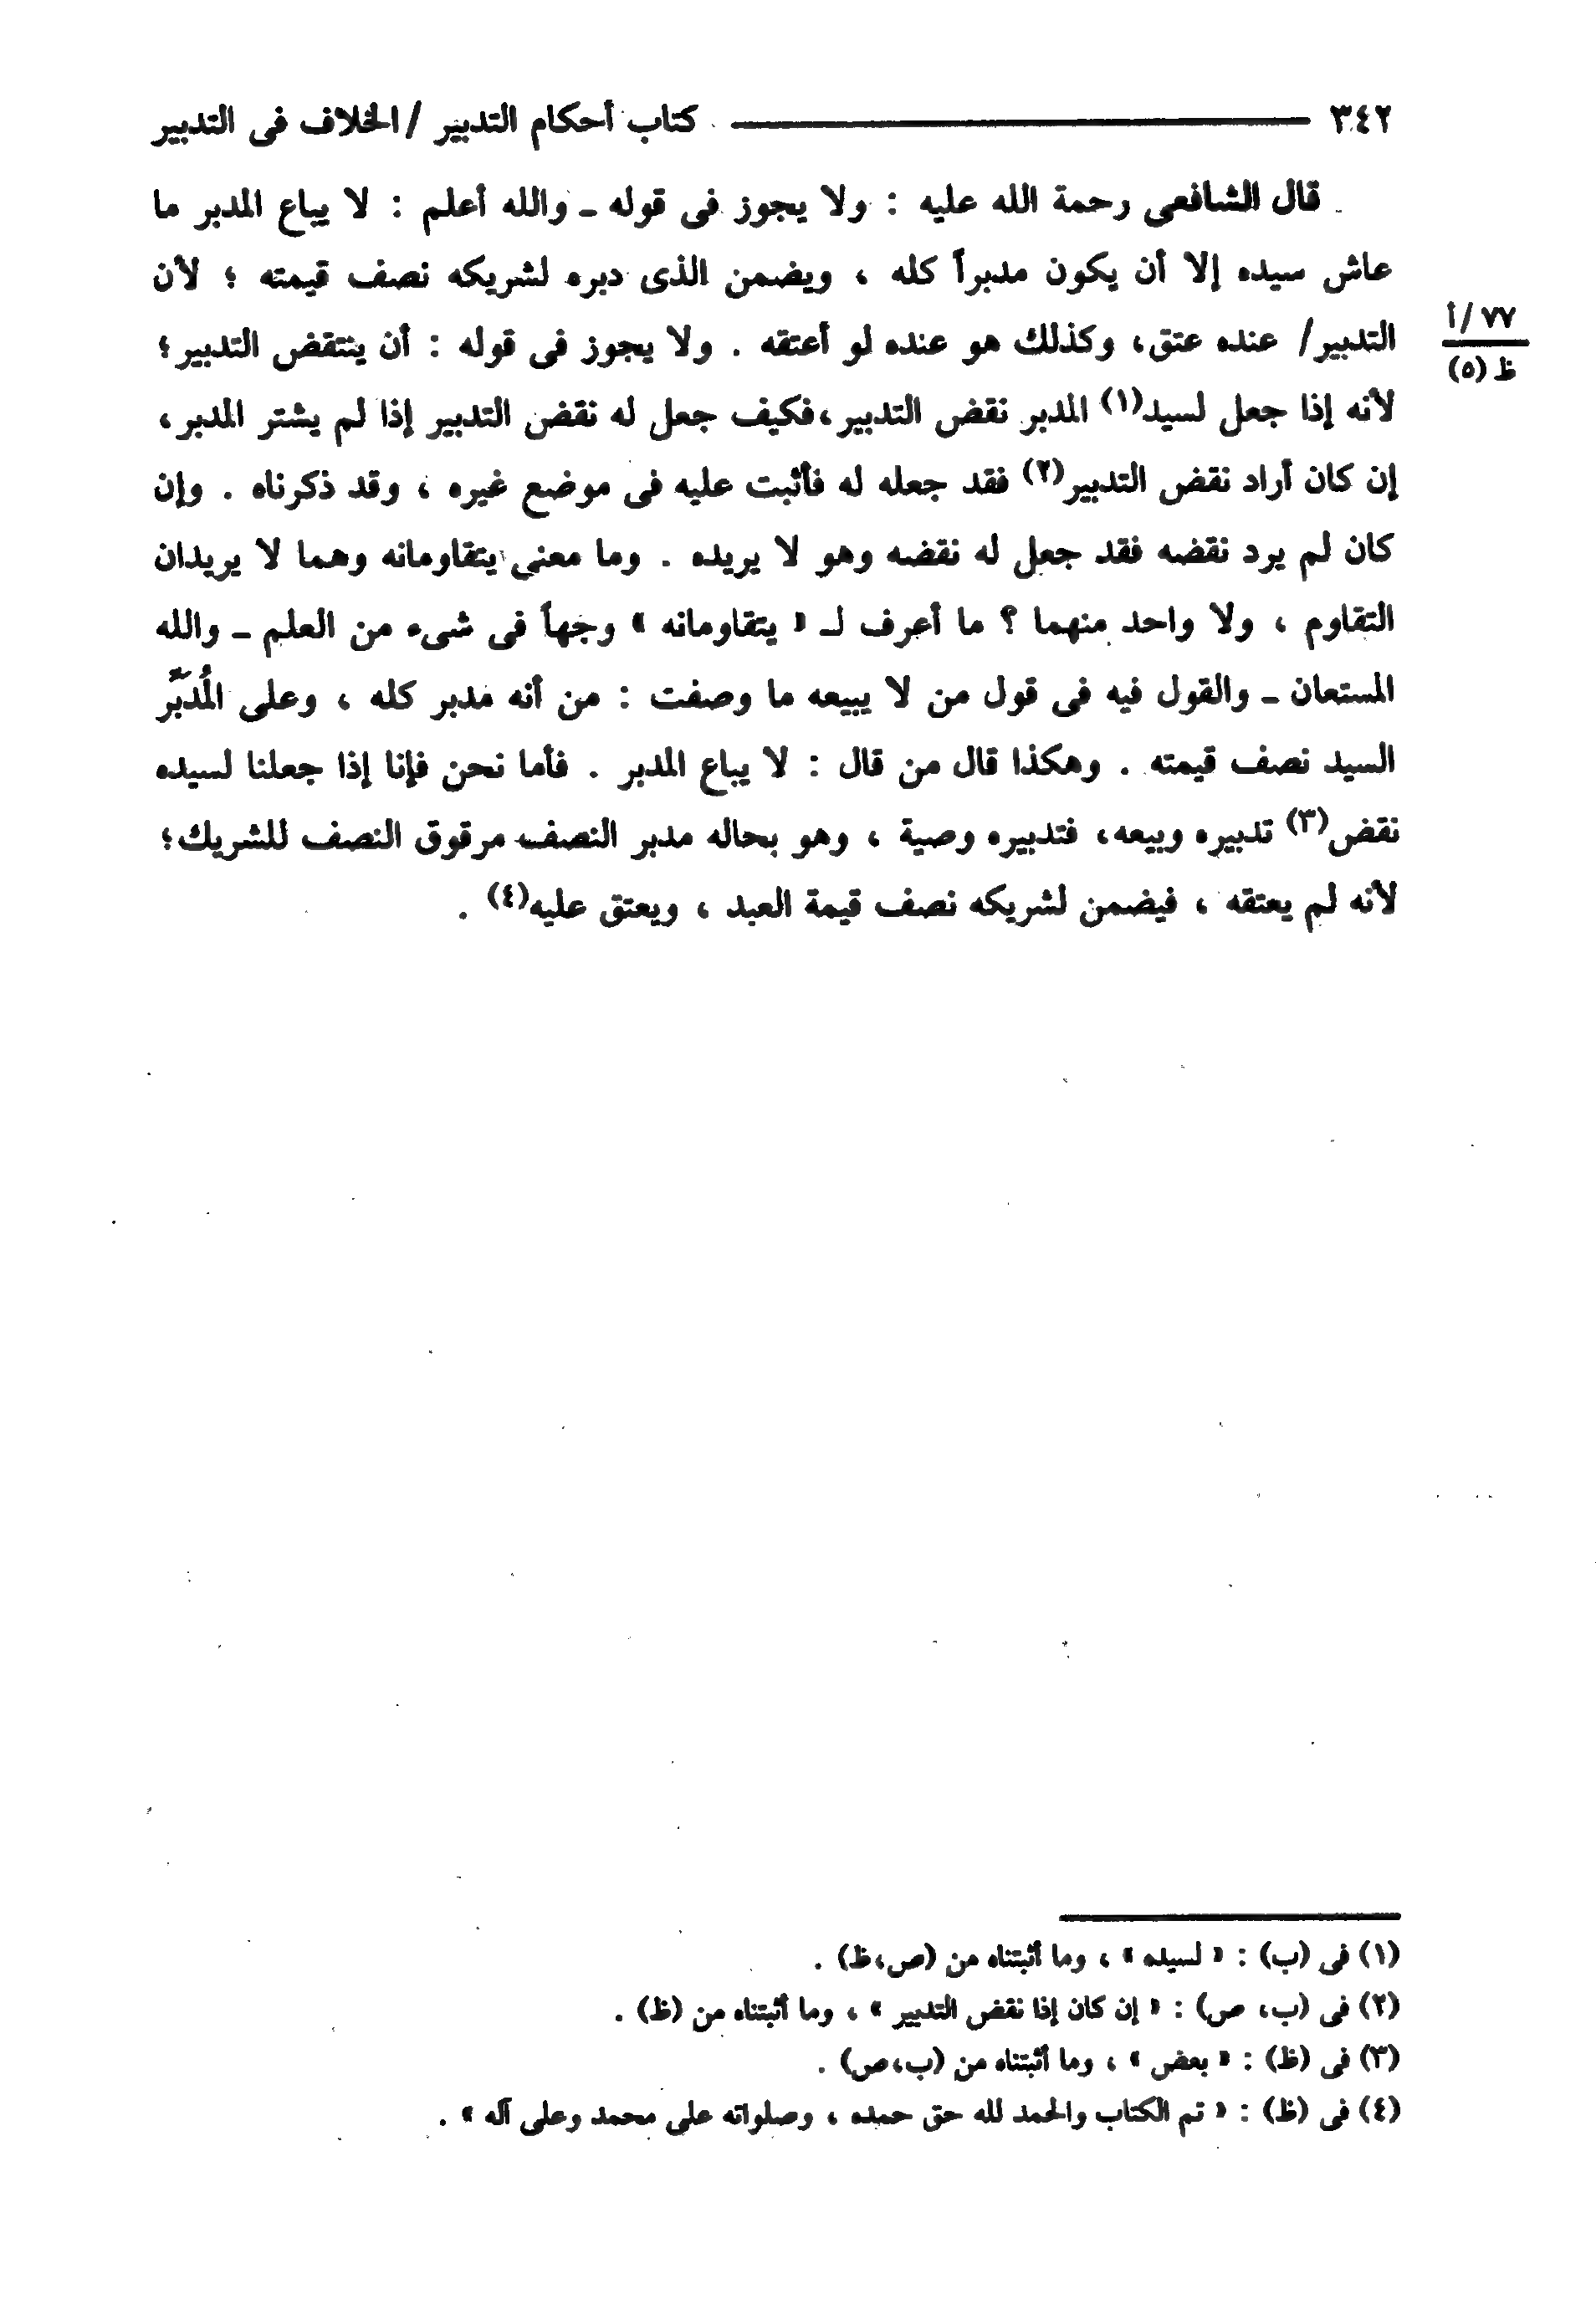 ٣٤٢ ــــــــــ كتاب أحكام التدبير / الخلاف فى التدبير
قال الشافعى رحمة الله عليه : ولا يجوز فى قوله ـ والله أعلم : لا يباع المدبر ما
عاش سيده إلا أن يكون مدبراً كله ، ويضمن الذى دبره لشريكه نصف قيمته ؛ لأن
التدبير/ عنده عتق، وكذلك هو عنده لو أعتقه . ولا يجوز فى قوله : أن ينتقض التدبير؛
٧٧ /أ
ظ (٥)
لأنه إذا جعل لسيد(١) المدبر نقض التدبير،فكيف جعل له نقض التدبير إذا لم يشتر المدبر،
إن كان أراد نقض التدبير(٢) فقد جعله له فأثبت عليه فى موضع غيره ، وقد ذكرناه . وإن
كان لم يرد نقضه فقد جعل له نقضه وهو لا يريده . وما معنى يتقاومانه وهما لا يريدان
التقاوم ، ولا واحد منهما ؟ ما أعرف لـ « يتقاومانه » وجهاً فى شىء من العلم ـ والله
المستعان ـ والقول فيه فى قول من لا يبيعه ما وصفت : من أنه مدبر كله ، وعلى المُدَبِّر
السيد نصف قيمته . وهكذا قال من قال : لا يباع المدبر . فأما نحن فإنا إذا جعلنا لسيده
نقض(٣) تدبيره وبيعه، فتدبيره وصية ، وهو بحاله مدبر النصف مرقوق النصف للشريك؛
لأنه لم يعتقه ، فيضمن لشريكه نصف قيمة العبد ، ويعتق عليه(٤) .
(١) فى (ب) : « لسيده » ، وما أثبتناه من (ص،ظ) .
(٢) فى (ب، ص) : « إن كان إذا نقض التدبير » ، وما أثبتناه من (ظ) .
(٣) فى (ظ) : « بعض » ، وما أثبتناه من (ب،ص) .
(٤) فى (ظ) : « تم الكتاب والحمد لله حق حمده ، وصلواته على محمد وعلى آله » .